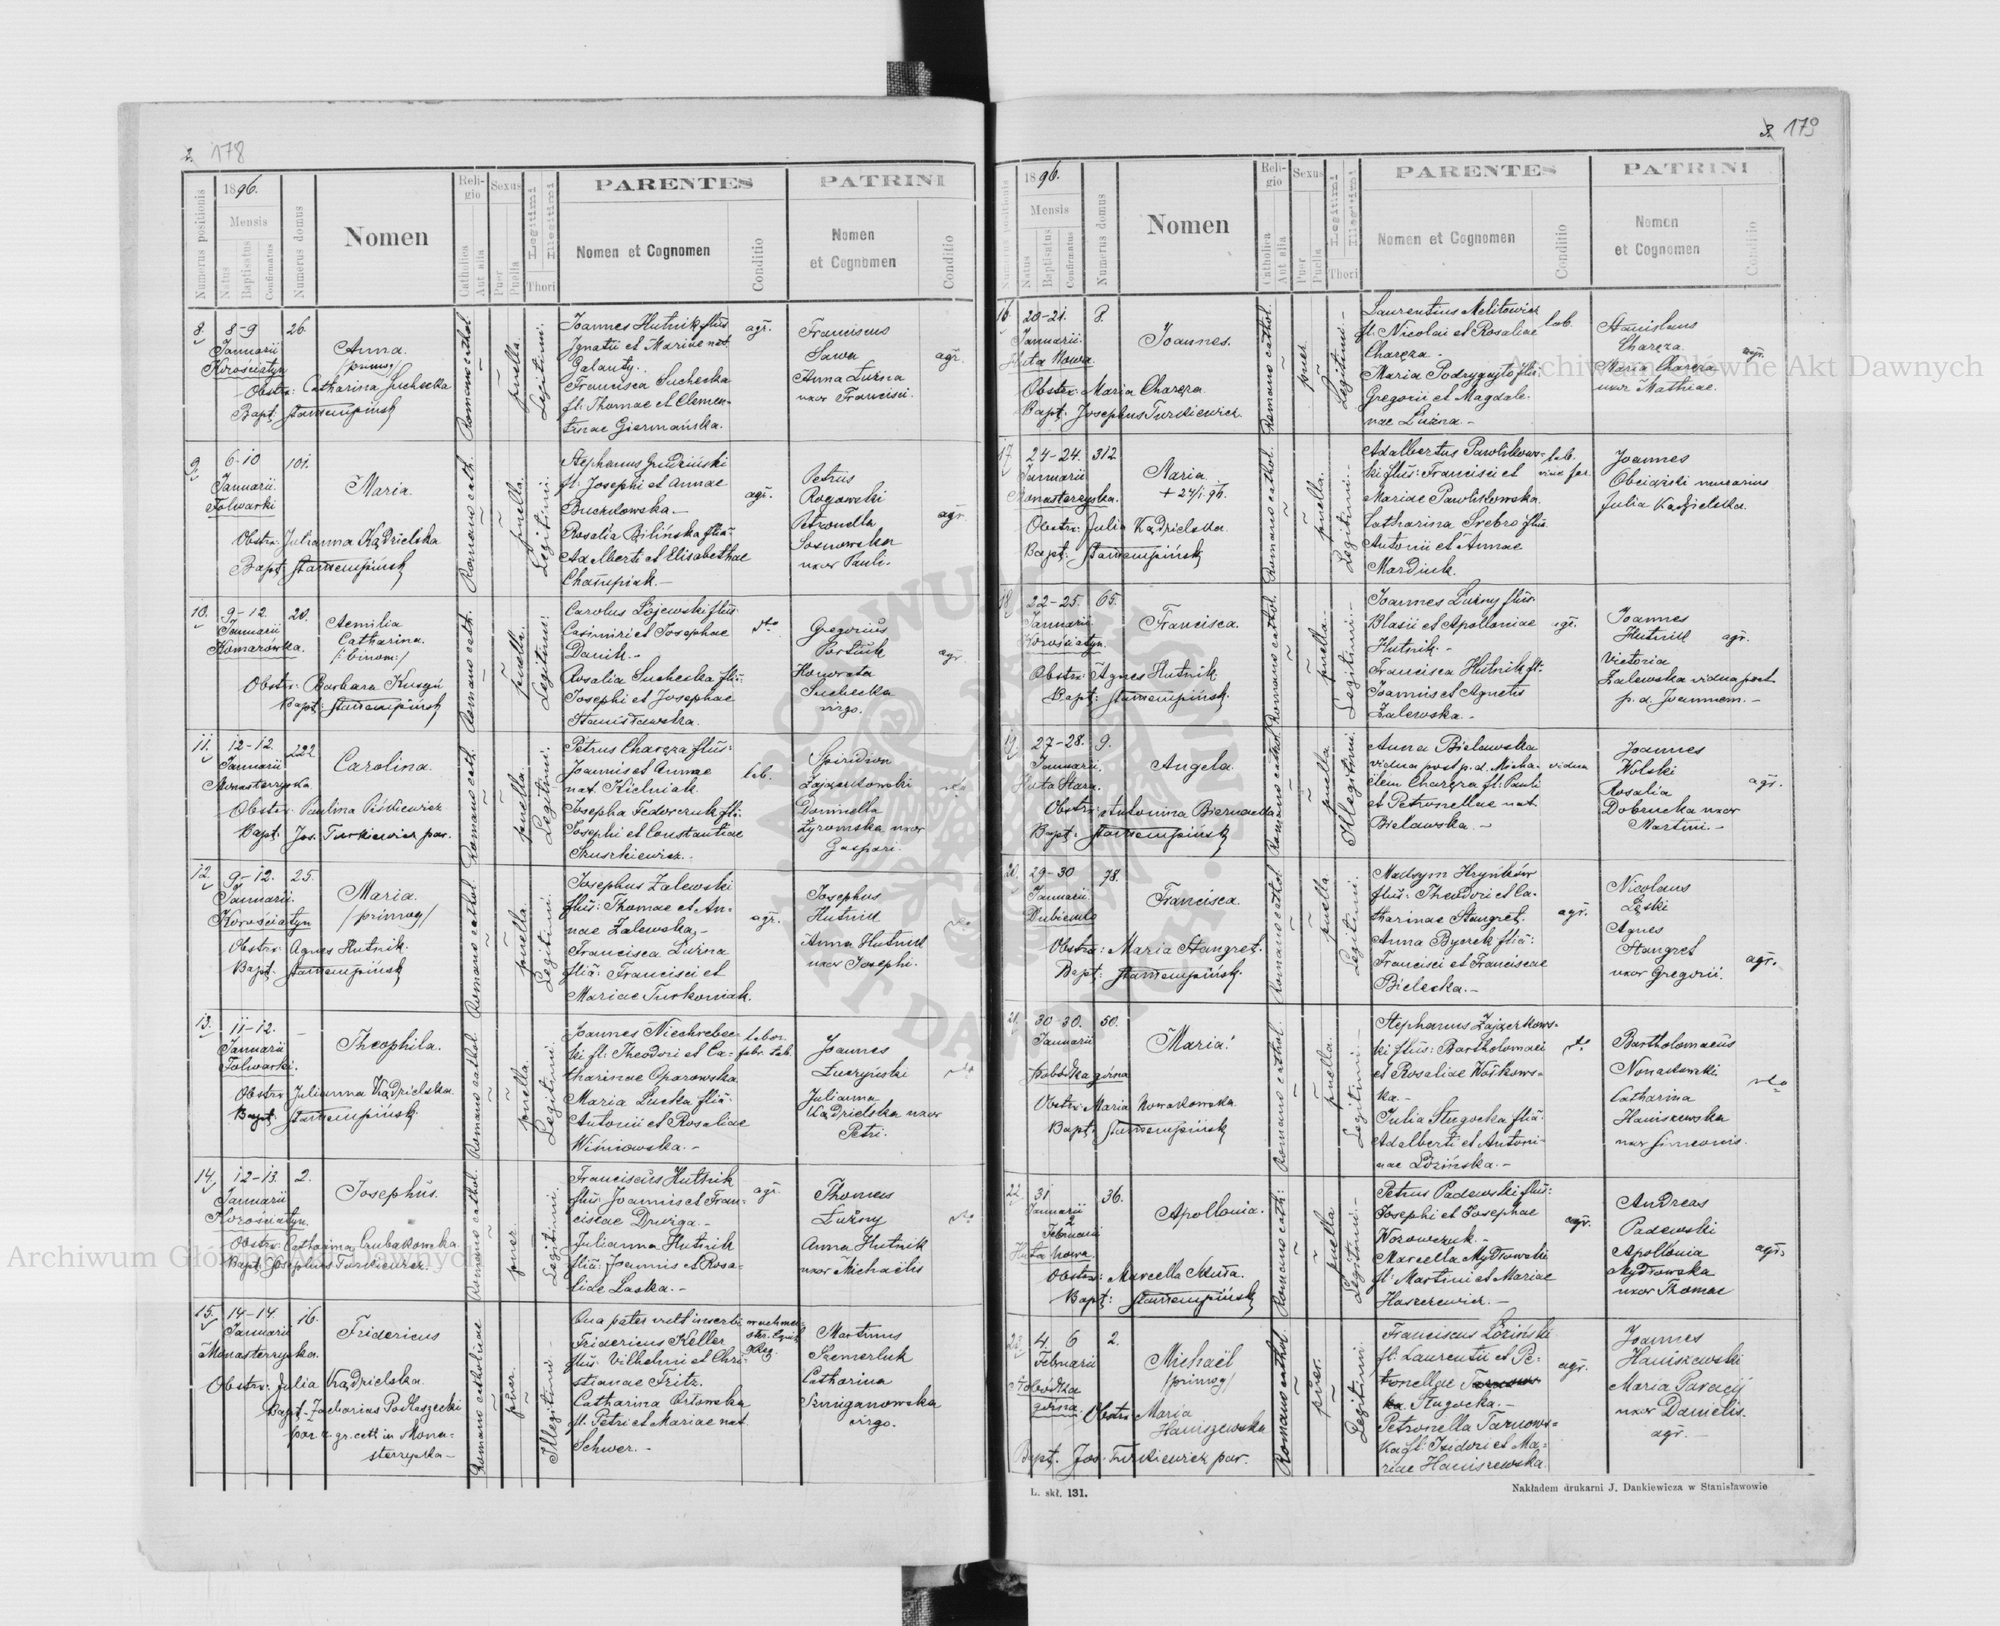 2. 178
1896.
Numerus positionis
Mensis
Natus
Baptisatus
Confirmatus
Numerus domus
Nomen
Religio
Catholica
Aut alia
Sexus
Puer
Puella
Legitimi
Illegitimi
Thori
PARENTES
Nomen et Cognomen
Conditio
PATRINI
Nomen
et Cognomen
Conditio
8. 8-9 Januarii Korościatyn 26.
Anna.
/primog/
Obstr: Catharina Suchecka
Bapt:
Romano cathol.
puella.
Legitimi.
Joannes Hutnik flius
Ignatii et Mariae nat.
Galanty.
Francisca Suchecka
fl: Thomae et Clemen-
tinae Giermańska.
agr.
Franciscus
Sawa
Anna Łuźna
uxor Francisci.
agr.
9. 6-10 Januarii Folwarki 101.
Maria.
Obstr: Julianna Kądzielska
Bapt:
Romano cath.
puella.
Legitimi.
Stephanus Grudziński
fl: Josephi et Annae
Buczkowska.-
Rosalia Bilińska flia:
Adalberti et Elisabethae
agr.
Petrus
Rogowski
Petronella
Sosnowska
uxor Pauli.
agr.
10. 9-12 Januarii Komarówka. 20.
Aemilia
Catharina.
/:binom:/
Obstr: Barbara
Bapt:
Romano cath.
puella.
Legitimi.
Carolus Łojewski flius
Casimiri et Josephae
Danik.-
Rosalia Suchecka flia:
Josephi et Josephae
Stanisławska.
dto
Gregorius
Honorata
Suchecka
virgo.
agr
11. 12-12. Januarii Monasterzyska 222
Carolina.
Obstr: Paulina Piśkiewicz
Bapt: Jos. Turkiewicz par.
Romano cath.
puella.
Legitimi.
Petrus Charęza flius:
Joannis et Annae
nat. Kielniak.
Josepha Fedorczuk fl:
Josephi et Constantiae
Szuszkiewicz.
lab.
Spiridion
Zajączkowski
Dominella
Żyromska uxor
Gaspari.
dto
12. 9-12. Januarii Korościatyn 25.
Maria.
/primog/
Obstr: Agnes Hutnik.
Bapt:
Romano cathol.
puella.
Legitimi.
Josephus Zalewski
flius: Thomae et An-
nae Zalewska.-
Francisca Łuźna
flia: Francisci et
Mariae Turkoniak.
agr.
Josephus
Hutnik
Anna Hutnik
uxor Josephi.
dto
13. 11-12. Januarii Folwarki. -
Theophila.
Obstr: Julianna Kądzielska.
Bapt:
Romano cathol.
puella.
Legitimi.
Joannes Niechrebec-
ki fl: Theodori et Ca-
tharinae Oparowska
Maria Łucka flia:
Antonii et Rosaliae
Wiśniowska.-
labor.
fabr. tab.
Joannes
Łuczyński
Julianna
Kądzielska uxor
Petri.
dto
14. 12-13. Januarii Korościatyn. 2.
Josephus.
Obstr: Catharina Czubakowska.
Bapt: Josephus Turkiewicz.
Romano cathol.
puer.
Legitimi.
Franciscus Hutnik
flius: Joannis et Fran-
ciscae Drwięga.-
Julianna Hutnik
flia: Joannis et Rosa-
liae Laska.-
agr.
Thomas
Łuźny
Anna Hutnik
uxor Michaelis
dto
15. 14-14. Januarii Monasterzyska. 16.
Fridericus
Obstr: Julia Kądzielska.
Bapt: Zacharias Podlaszecki
par. r. gr. cath in Mona-
sterzyska-
Romano catholicae
puer.
Illegitimi.-
Qua pater vult inscribi
Fridericus Keller
flius: Vilhelmi et Chri-
stianae Fritz.
Catharina Orłowska
fl: Petri et Mariae nat.
Schwer.-
Martinus
Szmerluk
Catharina
Szmiganowska
virgo.
3. 179
1896.
Numerus positionis
Mensis
Natus
Baptisatus
Confirmatus
Numerus domus
Nomen
Religio
Catholica
Aut alia
Sexus
Puer
Puella
Legitimi
Illegitimi
Thori
PARENTES
Nomen et Cognomen
Conditio
PATRINI
Nomen
et Cognomen
Conditio
16. 20-21. Januarii. Huta Nowa. 8.
Joannes.
Obstr: Maria Charęza.
Bapt: Josephus Turkiewicz.
Romano cathol.
puer.
Legitimi.-
Laurentius Melitowicz
fl. Nicolai et Rosaliae
Charęza.
Maria Podrygajło flia:
Gregorii et Magdale-
nae Łuźna.-
lab.
Stanislaus
Charęza.
Maria Charęza
uxor Mathiae.
agr.
17. 24-24. Januarii Monasterzyska. 312.
Maria.
+ 27/1 96.
Obstr: Julia Kądzielska.
Bapt:
Romano cathol.
puella.
Legitimi.-
Adalbertus Pawlikows-
ki flius: Francisci et
Mariae Pawlikowska.
Catharina Srebro flia:
Antonii et Annae
Marciuk.
Joannes
Julia Kądzielska.
18. 22-25. Januarii Korościatyn. 65.
Francisca.
Obstr: Agnes Hutnik.
Bapt:
Romano cathol.
puella.
Legitimi.-
Joannes Łuźny flius
Blasii et Apolloniae
Hutnik.-
Francisca Hutnik fl:
Joannis et Agnetis
Zalewska.-
agr.
Joannes
Hutnik
Victoria
Zalewska vidua post
p. d. Joannem.-
agr.
19. 27-28. Januarii. Huta Stara. 9.
Angela.
Obstr: Antonina Biernacka
Bapt:
Romano cathol
puella
Illegitimi.
Anna Bielawska
vidua post p. d. Micha-
elem Charęza fl: Pauli
et Petronellae nat.
Bielawska.-
vidua
Joannes
Wolski
Rosalia
Dobrucka uxor
Martini-
agr.
20. 29-30 Januarii Dubienko 78.
Francisca.
Obstr: Maria Stangret.
Bapt:
Romano cathol
puella.
Legitimi.
Maksym Hryńków
flius: Theodori et Ca-
tharinae Stangret.
Anna Byczek flia:
Francisci et Franciscae
Bielecka.-
agr.
Nicolaus
Łęski
Agnes
Stangret
uxor Gregorii.
agr.
21. 30-30. Januarii Słobódka górna 50.
Maria.
Obstr: Maria Nowakowska
Bapt:
Romano cathol.
puella.
Legitimi.-
Stephanus Zajączkows-
ki flius: Bartholomaei
et Rosaliae Wołkows-
ka.-
Julia Sługocka flia:
Adalberti et Antoni-
nae Łozińska.-
dto
Bartholomaeus
Nowakowski
Catharina
Haniszewska
uxor Simeonis.
dto
22. 31 Januarii 2 Februarii Huta nowa. 36.
Apollonia.
Obstr: Marcella
Bapt:
Romano cath:
puella
Legitimi.-
Petrus Padewski flius:
Josephi et Josephae
Worowczuk.-
Marcella Mydłowska
fl: Martini et Mariae
Haszczewicz.-
agr.
Andreas
Padewski
Apollonia
Mydłowska
uxor Thomae
agr.
23. 4. 6 Februarii Słobódka górna. 2.
Michaël
/primog/
Obstr: Maria
Haniszewska
Bapt: Jos. Turkiewicz par.
Romano cathol.
puer.
Legitimi.
Franciscus Łoziński
fl: Laurentii et Pe-
tronellae
Sługocka.-
Petronella Tarnows-
ka fl: Isidori et Ma-
riae Haniszewska
agr.
Joannes
Haniszewski
Maria Paracij
uxor Danielis.
agr.-
L. skł. 131.
Nakładem drukarni J. Dankiewicza w Stanisławowie
Archiwum Główne Akt Dawnych
Archiwum Główne Akt Dawnych